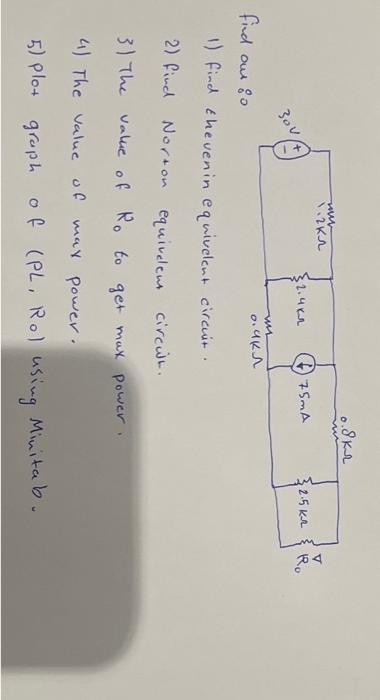 30V
+
-
1.2KΩ
2.4KΩ
75mA
0.8KΩ
0.4KΩ
2.5KΩ
R₀
find out 8o
1) find thevenin equivelent circuit.
2) find Norton equivelent circuit.
3) The value of R₀ to get max power.
4) The value of max power.
5) plot graph of (PL, R₀) using Minitab.